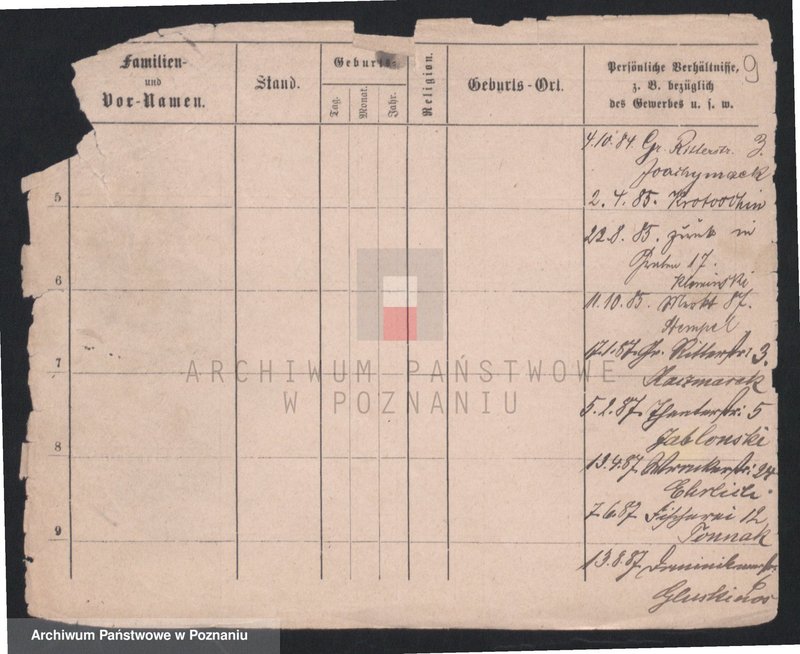 Familien-
und
Vor-Namen.
Stand.
Geburts-
Tag.
Monat.
Jahr.
Religion.
Geburts-Ort.
Persönliche Verhältnisse,
z. B. bezüglich
des Gewerbes u. s. w.
9
4.10.84. Gr. Ritterstr. 3.
Joachymack
5
2.4.85. Krotoschin
22.8.85. zurück in
Graben 17.
6
Kloninski
11.10.85. Markt 87.
Hempel
17.1.87. Gr. Ritterstr. 3.
7
Kaczmarek
5.2.87. 5
Jablonski
8
13.4.87.
Ehrlich.
7.6.87. Fischerei 12
Tonnak
9
13.8.87. Dominikanerstr.
ARCHIWUM PAŃSTWOWE
W POZNANIU
Archiwum Państwowe w Poznaniu